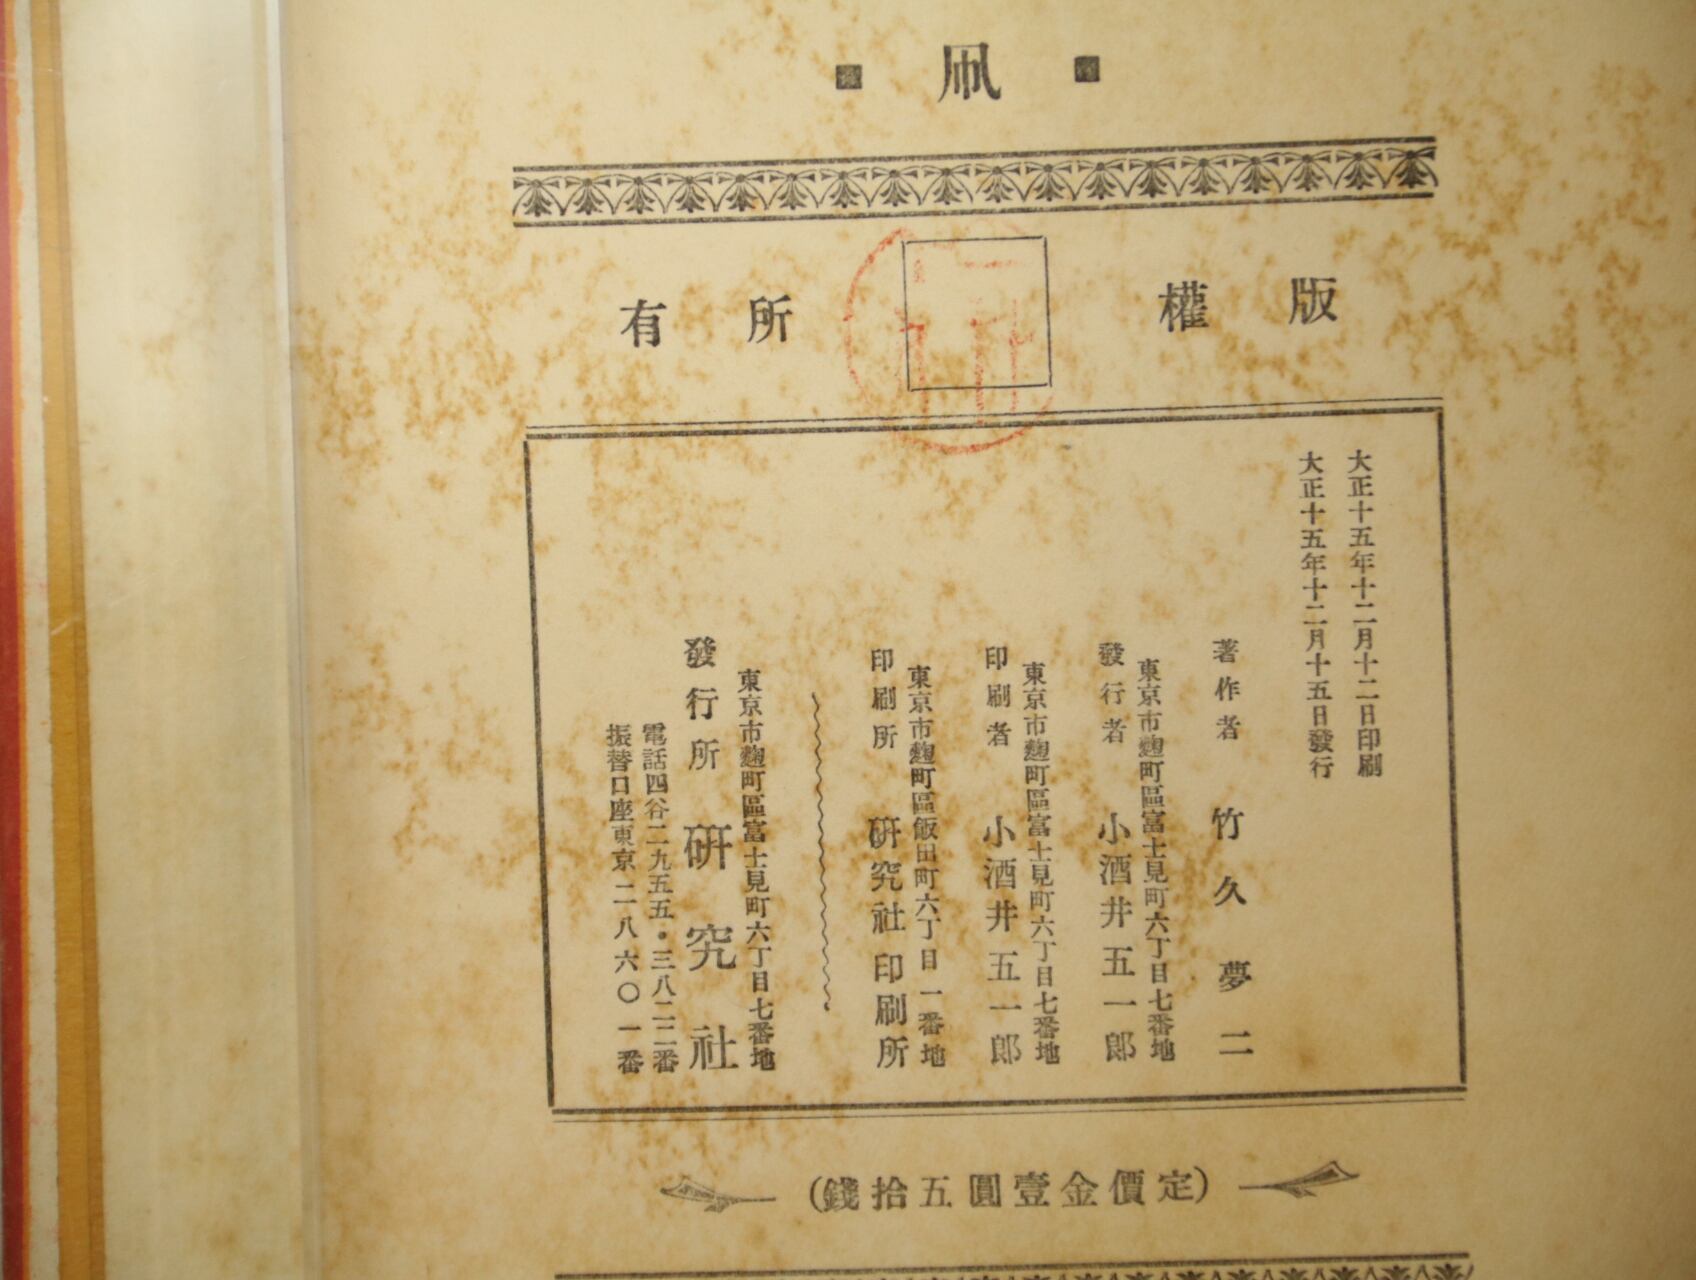 凧
版權所有
大正十五年十二月十二日印刷
大正十五年十二月十五日發行
著作者 竹久夢二
東京市麴町區富士見町六丁目七番地
發行者 小酒井五一郎
東京市麴町區富士見町六丁目七番地
印刷者 小酒井五一郎
東京市麴町區飯田町六丁目一番地
印刷所 研究社印刷所
東京市麴町區富士見町六丁目七番地
發行所 研究社
電話四谷二九五五・三八二二番
振替口座東京二八六〇一番
(定價金壹圓五拾錢)